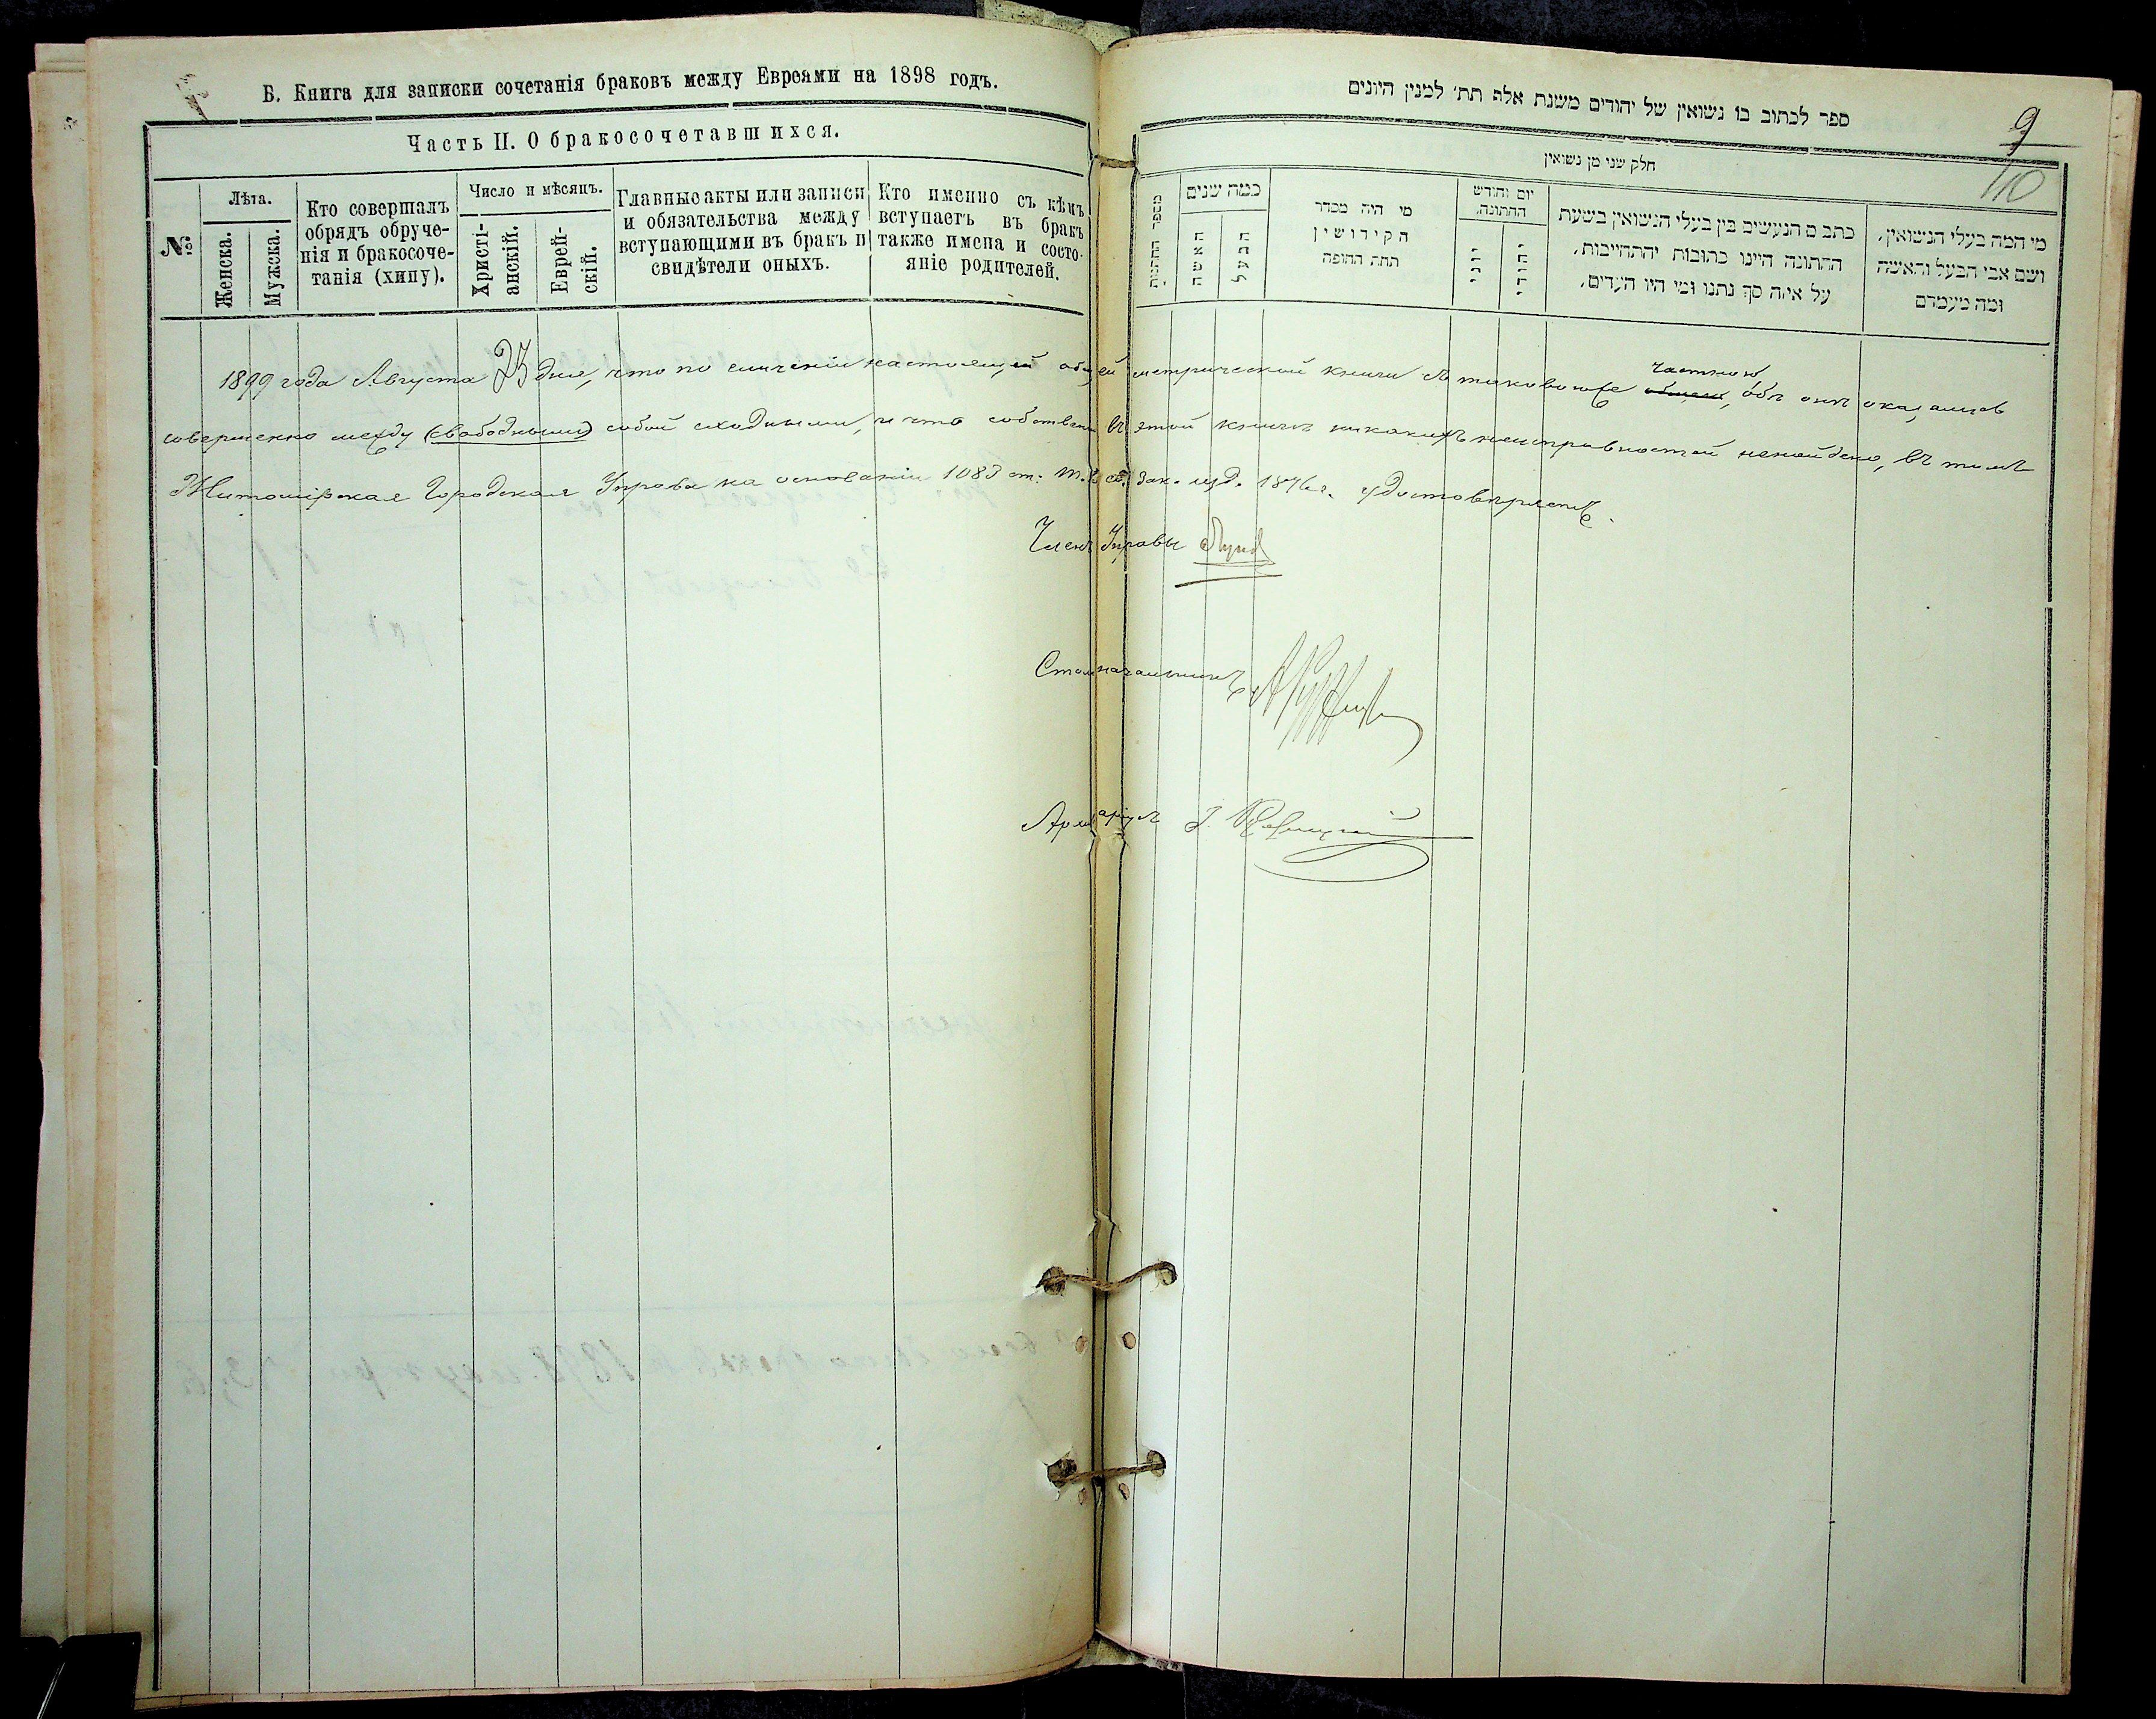 Б. Книга для записки сочетанія браковъ между Евреями на 1898 годъ.
Часть II. О бракосочетавшихся.
№
Лѣта.
Женска.
Мужска.
Кто совершалъ
обрядъ обруче-
нія и бракосоче-
танія (хипу).
Число и мѣсяцъ.
Христі-
анскій.
Еврей-
скій.
Главные акты или записи
и обязательства между
вступающими въ бракъ и
свидѣтели оныхъ.
Кто именно съ кѣмъ
вступаетъ въ бракъ
также имена и состо-
яніе родителей.
ספר לכתוב בו נשואין של יהודים משנת אלף תת׳ למנין היונים
9
10
חלק שני מן נשואין
מספר החתונות
כמה שנים
האשה
הבעל
מי היה מסדר
הקידושין
תחת החופה
יום וחודש
החתונה.
יוני
יהודי
כתבים הנעשים בין בעלי הנשואין בשעת
החתונה היינו כתובות יהתחייבות,
על איזה סך נתנו ומי היו העדים,
מי המה בעלי הנשואין,
ושם אבי הבעל והאשה
ומה מעמדם
1899 года Августа 25 дня, что по сличеніи настоящей общей метрической книги съ таковою же общею частною, обѣ онѣ оказались
совершенно между (свободными) собой сходными, и что собственно въ этой книгѣ никакихъ неисправностей ненайдено, въ томъ
Житомірская Городская Управа на основаніи 1083 ст. т. св. Зак. изд. 1876 г. удостовѣряетъ.
Членъ Управы
Столоначальникъ
Архиваріусъ